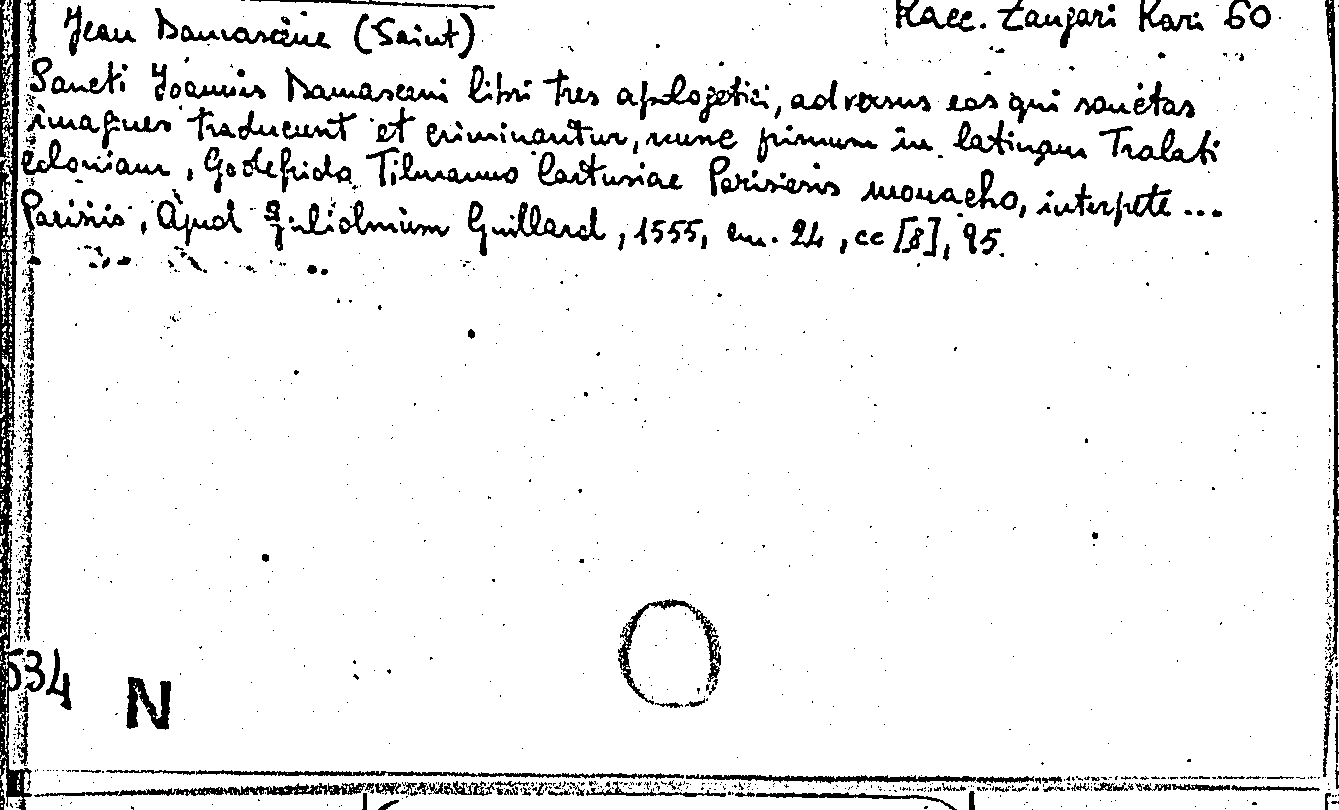 Jean Damascène (Saint)
Racc. Zangari Rari 60
Sancti Joannis Damasceni libri tres apologetici, adversus eos qui sanctas
imagines traducunt et criminantur, nunc primum in latinam Tralati
Godefrido Tilmanno Cartusiae Parisiesis monacho, interpete ...
Parisiis, Apud Guillard, 1555, cm. 24, cc [8], 95.
534
N